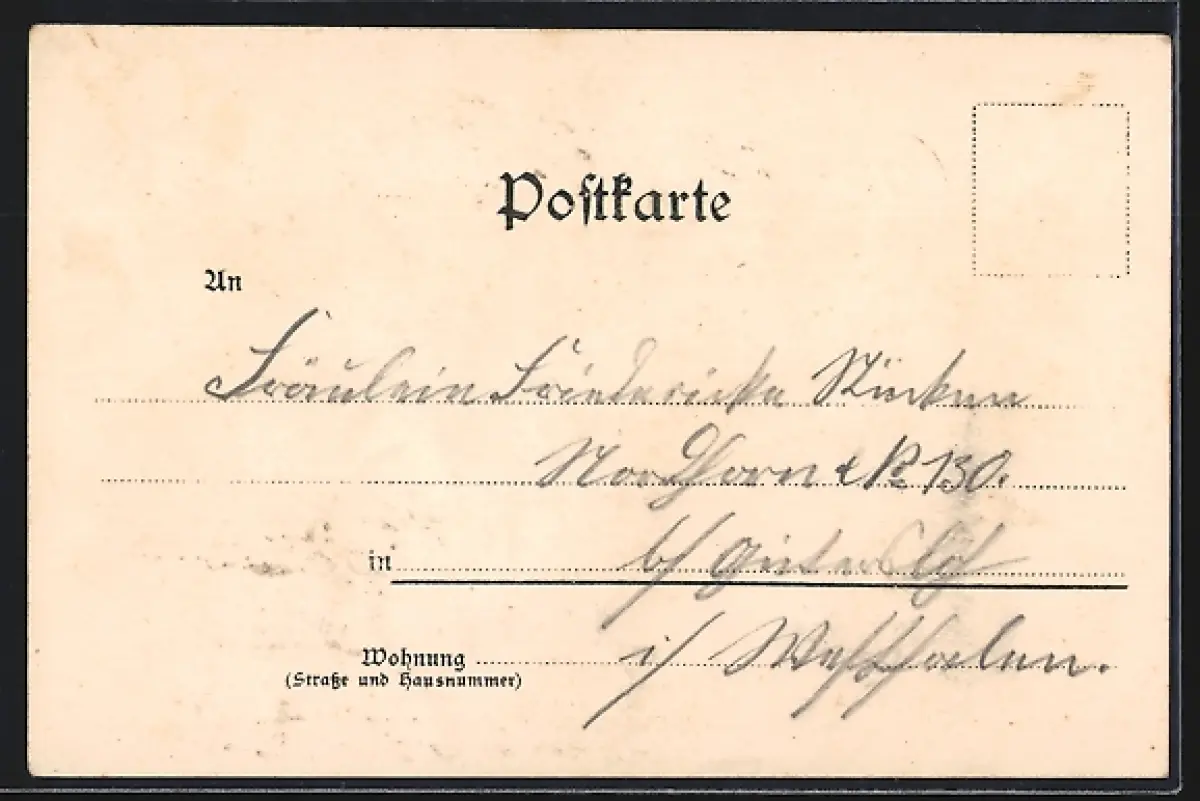 Postkarte
An
Fräulein Friedericke
Nordhorn № 130.
in b/ Gütersloh
Wohnung i/ Westfalen.
(Straße und Hausnummer)